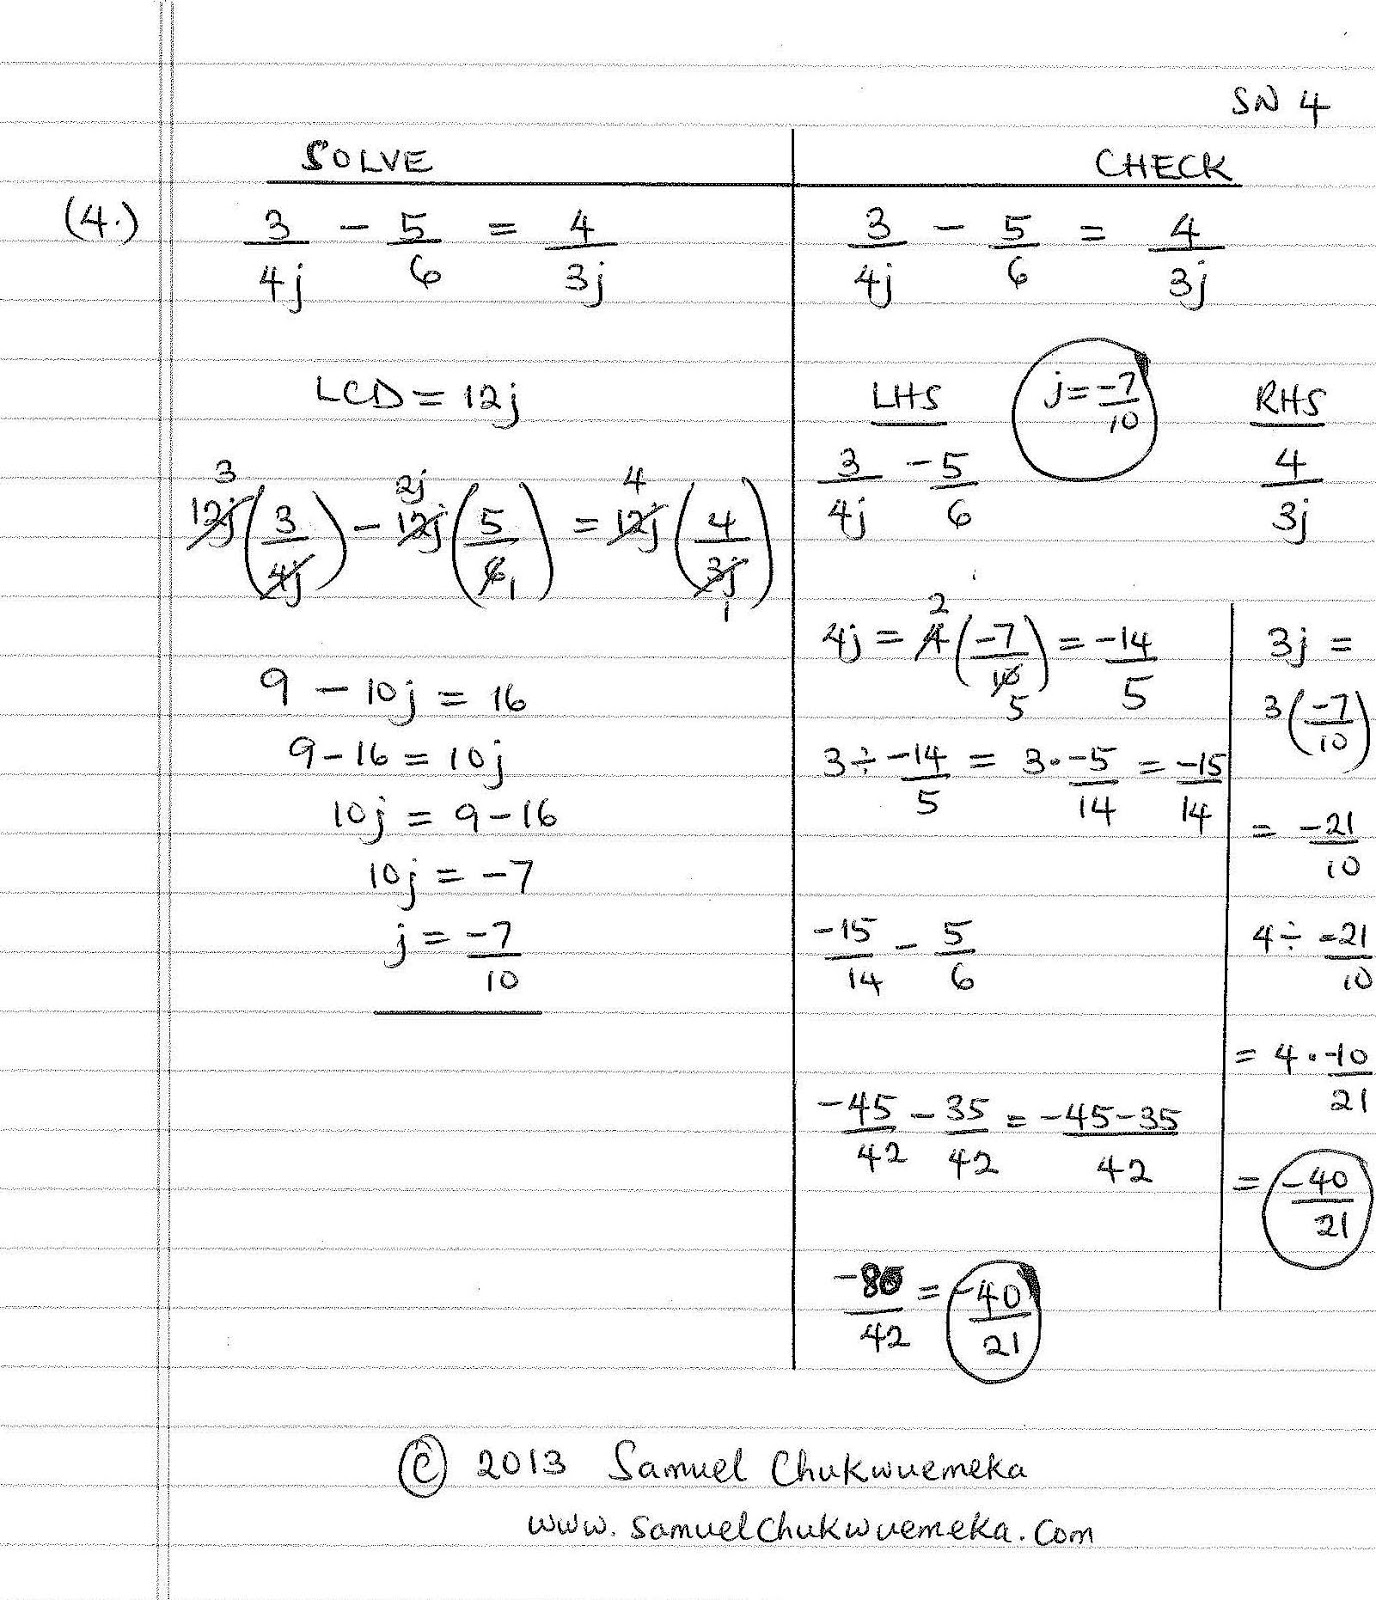 SN 4
SOLVE
(4.) 3/4j - 5/6 = 4/3j
LCD = 12j
3 2j 4
12j(3/4j) - 12j(5/6) = 12j(4/3j)
1 1
9 - 10j = 16
9 - 16 = 10j
10j = 9 - 16
10j = -7
j = -7/10
CHECK
3/4j - 5/6 = 4/3j
LHS
j = -7/10
RHS
3/4j - 5/6
4/3j
2
4j = 4(-7/10) = -14/5
5
3 ÷ -14/5 = 3 · -5/14 = -15/14
-15/14 - 5/6
-45/42 - 35/42 = -45-35/42
-80/42 = -40/21
3j =
3(-7/10)
= -21/10
4 ÷ -21/10
= 4 · -10/21
= -40/21
© 2013 Samuel Chukwuemeka
www.samuelchukwuemeka.com